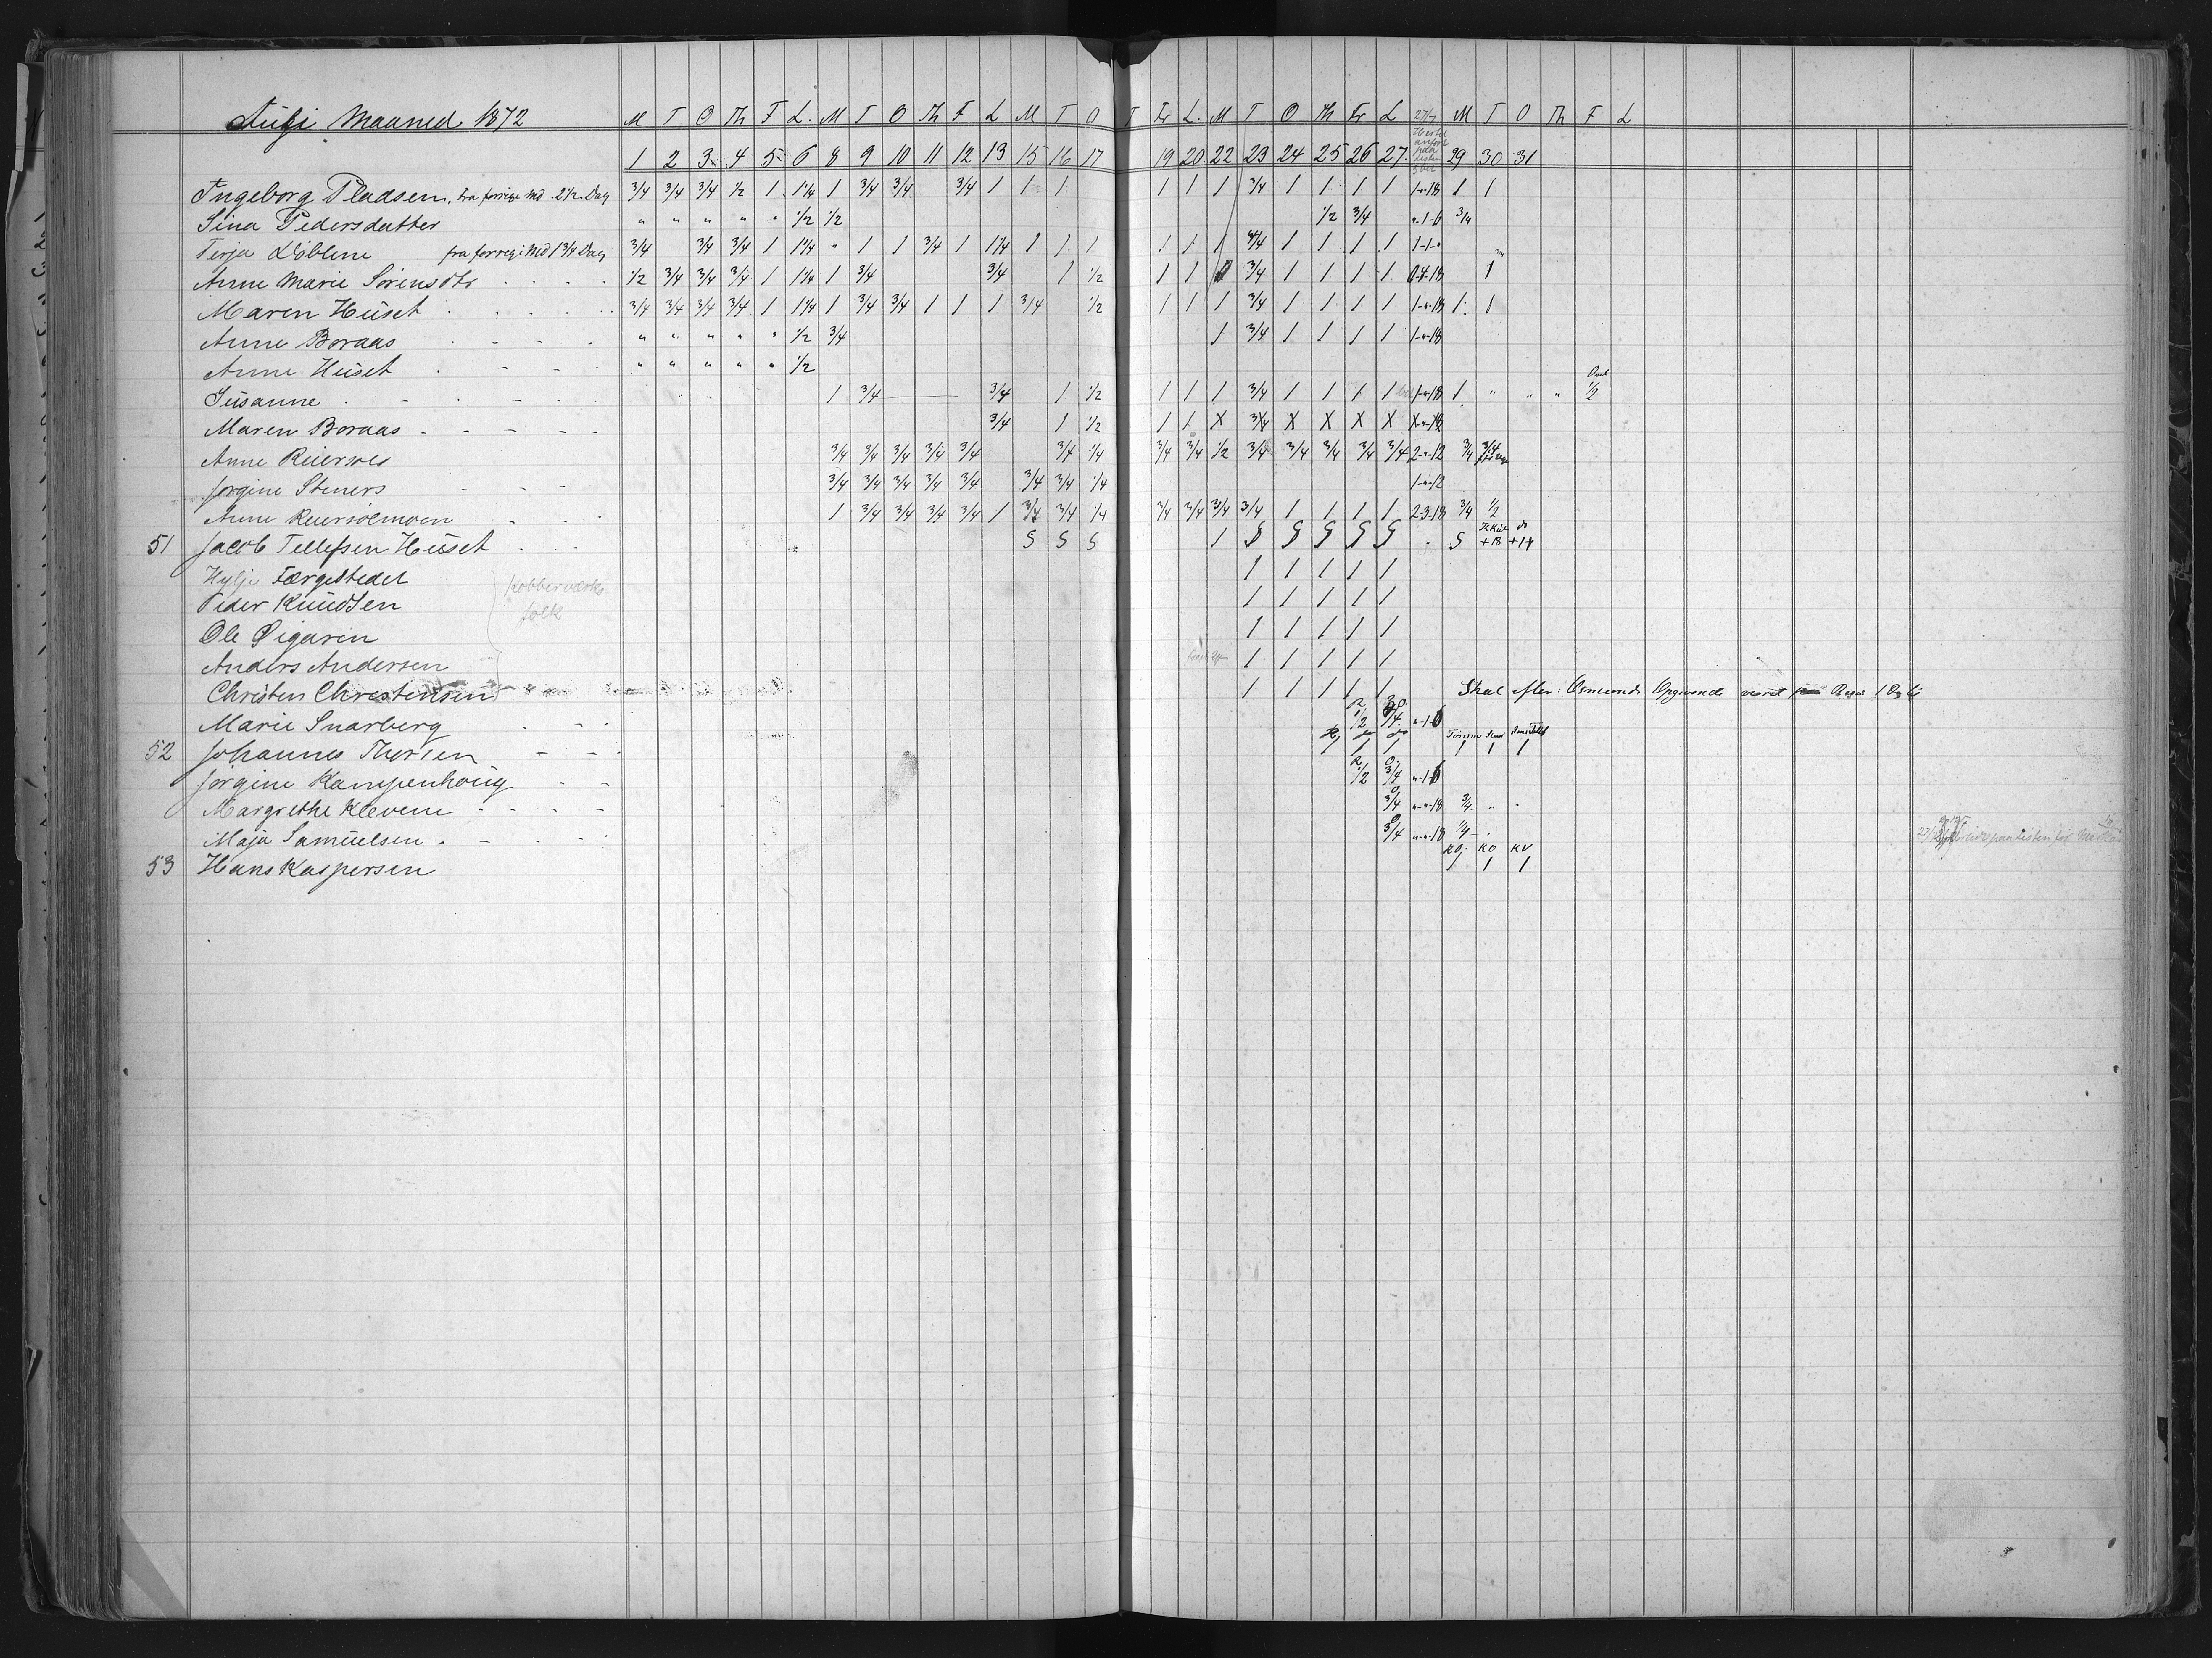 Julji Maaned 1872 M T O Th F L. M T O Th F L M T O T Fr L. M T O Th Fr L 27/7 M T O Th F L
1 2 3 4 5 6 8 9 10 11 12 13 15 16 17 19 20 22 23 24 25 26 27 29 30 31
Ingeborg Pladsen, fra forrige Md. 2 1/2 Dag 3/4 3/4 3/4 1/2 1 1 1/4 1 3/4 3/4 3/4 1 1 1 1 1 1 3/4 1 1 1 1 1-"-18 1 1
Sina Pedersdatter " " " " " 1/2 1/2 1/2 3/4 "-1-6 3/4
Terja Löblene fra forrige Md 1 3/4 Dag 3/4 3/4 3/4 1 1 1/4 " 1 1 3/4 1 1 1/4 1 1 1 1 1 1 3/4 1 1 1 1 1-1-"
Anne Marie Sörensdtr 1/2 3/4 3/4 3/4 1 1 1/4 1 3/4 3/4 1 1/2 1 1 3/4 1 1 1 1 0-4-18 1
Maren Huset 3/4 3/4 3/4 3/4 1 1 1/4 1 3/4 3/4 1 1 1 3/4 1/2 1 1 1 3/4 1 1 1 1 1-"-18 1 1
Anne Boraas " " " " " 1/2 3/4 1 3/4 1 1 1 1 1-"-18
Anne Huset " " " " " 1/2
Susanne 1 3/4 3/4 1 1/2 1 1 1 3/4 1 1 1 1 1-"-18 1 " " " 1/2
Maren Boraas 3/4 1 1/2 1 1 X 3/4 X X X X X-"-18
Anne Reiersöl 3/4 3/4 3/4 3/4 3/4 3/4 1/4 3/4 3/4 1/2 3/4 3/4 3/4 3/4 3/4 2-"-12 3/4 3/4
Jorgine Steners 3/4 3/4 3/4 3/4 3/4 3/4 3/4 1/4 1-"-12
Anne Reiersölmoen 1 3/4 3/4 3/4 3/4 1 3/4 3/4 1/4 3/4 3/4 3/4 3/4 1 1 1 1 2-3-18 3/4 1/2
51 Jacob Tellefsen Huset S S S 1 S S S S S S +18 +14
Hylje Færgestedet 1 1 1 1 1
Peder Knudsen Kobberværks folk 1 1 1 1 1
Ole Øigaren 1 1 1 1 1
Anders Andersen 1 1 1 1 1
Christen Christensen 1 1 1 1 1 Skal efter Osmunds Opgivende været
Marie Snarberg 1/2 3/4 "-1-6
52 Johannes Thorsen 1 1 1 1 1 1
Jorgine Kampenhoug 1/2 3/4 "-1-6
Margrethe Kleven 3/4 "-"-18 3/4 " "
Maja Samuelsen 3/4 "-"-18 1/4
53 Hans Kaspersen KO KO KV 1 1 1